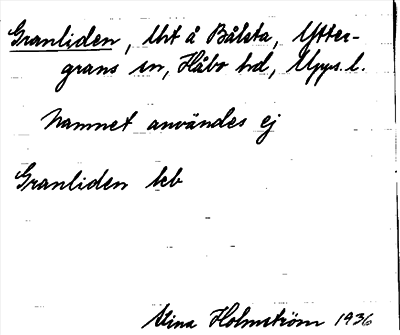 Granliden, lht å Bålsta, Ytter-
grans sn, Håbo hd, Upps. l.
Namnet användes ej
Granliden leb
Stina Holmström 1936